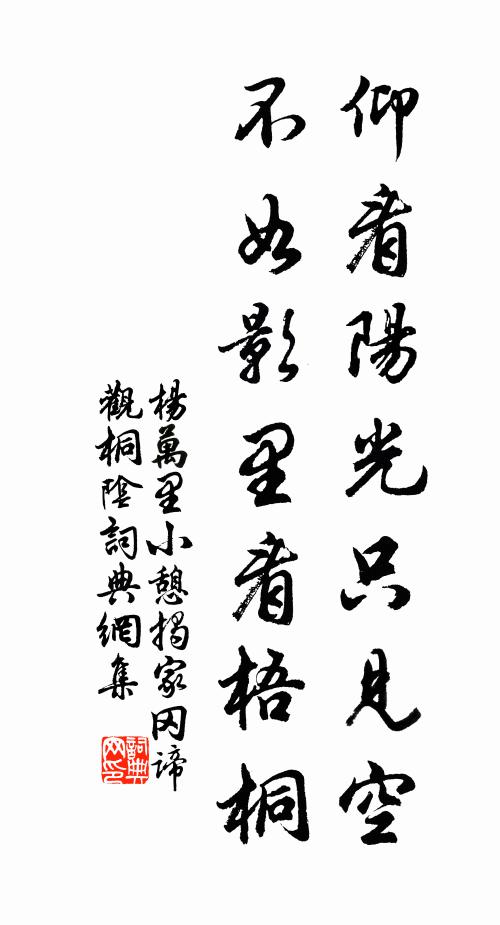 仰看陽光只見空
不如影里看梧桐
楊萬里小憩揭家冈諦
觀桐陰詞典網集
詞典網印